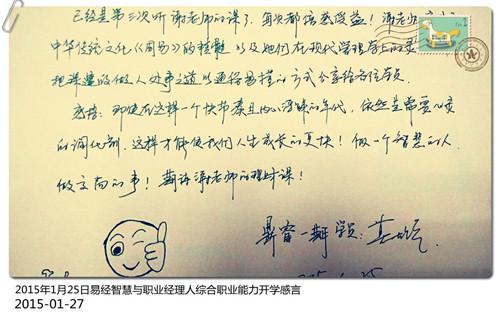 已经是第三次听谢老师的课了，每次都倍感受益！谢老师
中华传统文化《周易》的精髓，以及她们在现代管理学上的
把深邃的做人处事之道以通俗易懂的方式分享给各位学员。
感悟：即使在这样一个快节奏且内心浮躁的年代，依然是需要心灵
的调化剂，这样才能使我们人生成长的更快！做一个智慧的人
做方向的事！期待谢老师的课！
鼎睿一期学员：
2015年1月25日易经智慧与职业经理人综合职业能力开学感言
2015-01-27